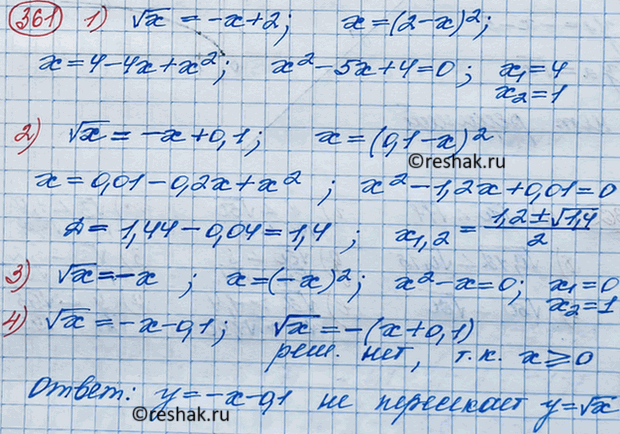 361 1) √x = -x+2; x=(2-x)²;
x=4-4x+x²; x²-5x+4=0; x₁=4
x₂=1
2) √x = -x+0,1; x=(0,1-x)²
©reshak.ru
x=0,01-0,2x+x²; x²-1,2x+0,01=0
D=1,44-0,04=1,4; x₁,₂ = (1,2±√1,4)/2
3) √x=-x; x=(-x)²; x²-x=0; x₁=0
x₂=1
4) √x=-x-0,1; √x=-(x+0,1)
реш. нет, т.к. x⩾0
Ответ: y=-x-0,1 не пересекает y=√x
©reshak.ru